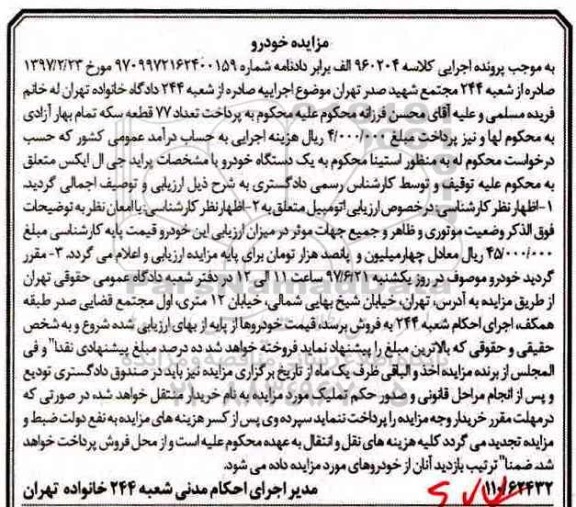 مزایده خودرو
به موجب پرونده اجرایی کلاسه ۹۶۰۲۰۴ الف برابر دادنامه شماره ۹۷۰۹۹۷۲۱۶۲۴۰۰۱۵۹ مورخ ۱۳۹۷/۲/۲۳
صادره از شعبه ۲۴۴ مجتمع شهید صدر تهران موضوع اجراییه صادره از شعبه ۲۴۴ دادگاه خانواده تهران له خانم
فریده مسلمی و علیه آقای محسن فرزانه محکوم علیه محکوم به پرداخت تعداد ۷۷ قطعه سکه تمام بهار آزادی
به محکوم لها و نیز پرداخت مبلغ ۴/۰۰۰/۰۰۰ ریال هزینه اجرایی به حساب درآمد عمومی کشور که حسب
درخواست محکوم له به منظور استیفا محکوم به یک دستگاه خودرو با مشخصات پراید جی ال ایکس متعلق
به محکوم علیه توقیف و توسط کارشناس رسمی دادگستری به شرح ذیل ارزیابی و توصیف اجمالی گردید.
۱- اظهار نظر کارشناسی: درخصوص ارزیابی اتومبیل متعلق به ۲- اظهار نظر کارشناسی: با امعان نظر به توضیحات
فوق الذکر وضعیت موتوری و ظاهر و جمیع جهات موثر در میزان ارزیابی این خودرو قیمت پایه کارشناسی مبلغ
۴۵/۰۰۰/۰۰۰ ریال معادل چهارمیلیون و پانصد هزار تومان برای پایه مزایده ارزیابی و اعلام می گردد. ۳- مقرر
گردید خودرو موصوف در روز یکشنبه ۹۷/۶/۲۱ ساعت ۱۱ الی ۱۲ در دفتر شعبه دادگاه عمومی حقوقی تهران
از طریق مزایده به آدرس، تهران، خیابان شیخ بهایی شمالی، خیابان ۱۲ متری، اول مجتمع قضایی صدر طبقه
همکف، اجرای احکام شعبه ۲۴۴ به فروش برسد، قیمت خودروها از پایه از بهای ارزیابی شده شروع و به شخص
حقیقی و حقوقی که بالاترین مبلغ را پیشنهاد نماید فروخته خواهد شد ده درصد مبلغ پیشنهادی نقدا" و فی
المجلس از برنده مزایده اخذ و الباقی ظرف یک ماه از تاریخ برگزاری مزایده نیز باید در صندوق دادگستری تودیع
و پس از انجام مراحل قانونی و صدور حکم تملیک مورد مزایده به نام خریدار منتقل خواهد شد، در صورتی که
در مهلت مقرر خریدار وجه مزایده را پرداخت ننماید سپرده وی پس از کسر هزینه های مزایده به نفع دولت ضبط و
مزایده تجدید می گردد کلیه هزینه های نقل و انتقال به عهده محکوم علیه است و از محل فروش پرداخت خواهد
شد. ضمنا" ترتیب بازدید آنان از خودروهای مورد مزایده داده می شود.
۱۱۰/۶۲۴۳۲ مدیر اجرای احکام مدنی شعبه ۲۴۴ خانواده تهران
ParsNamadData